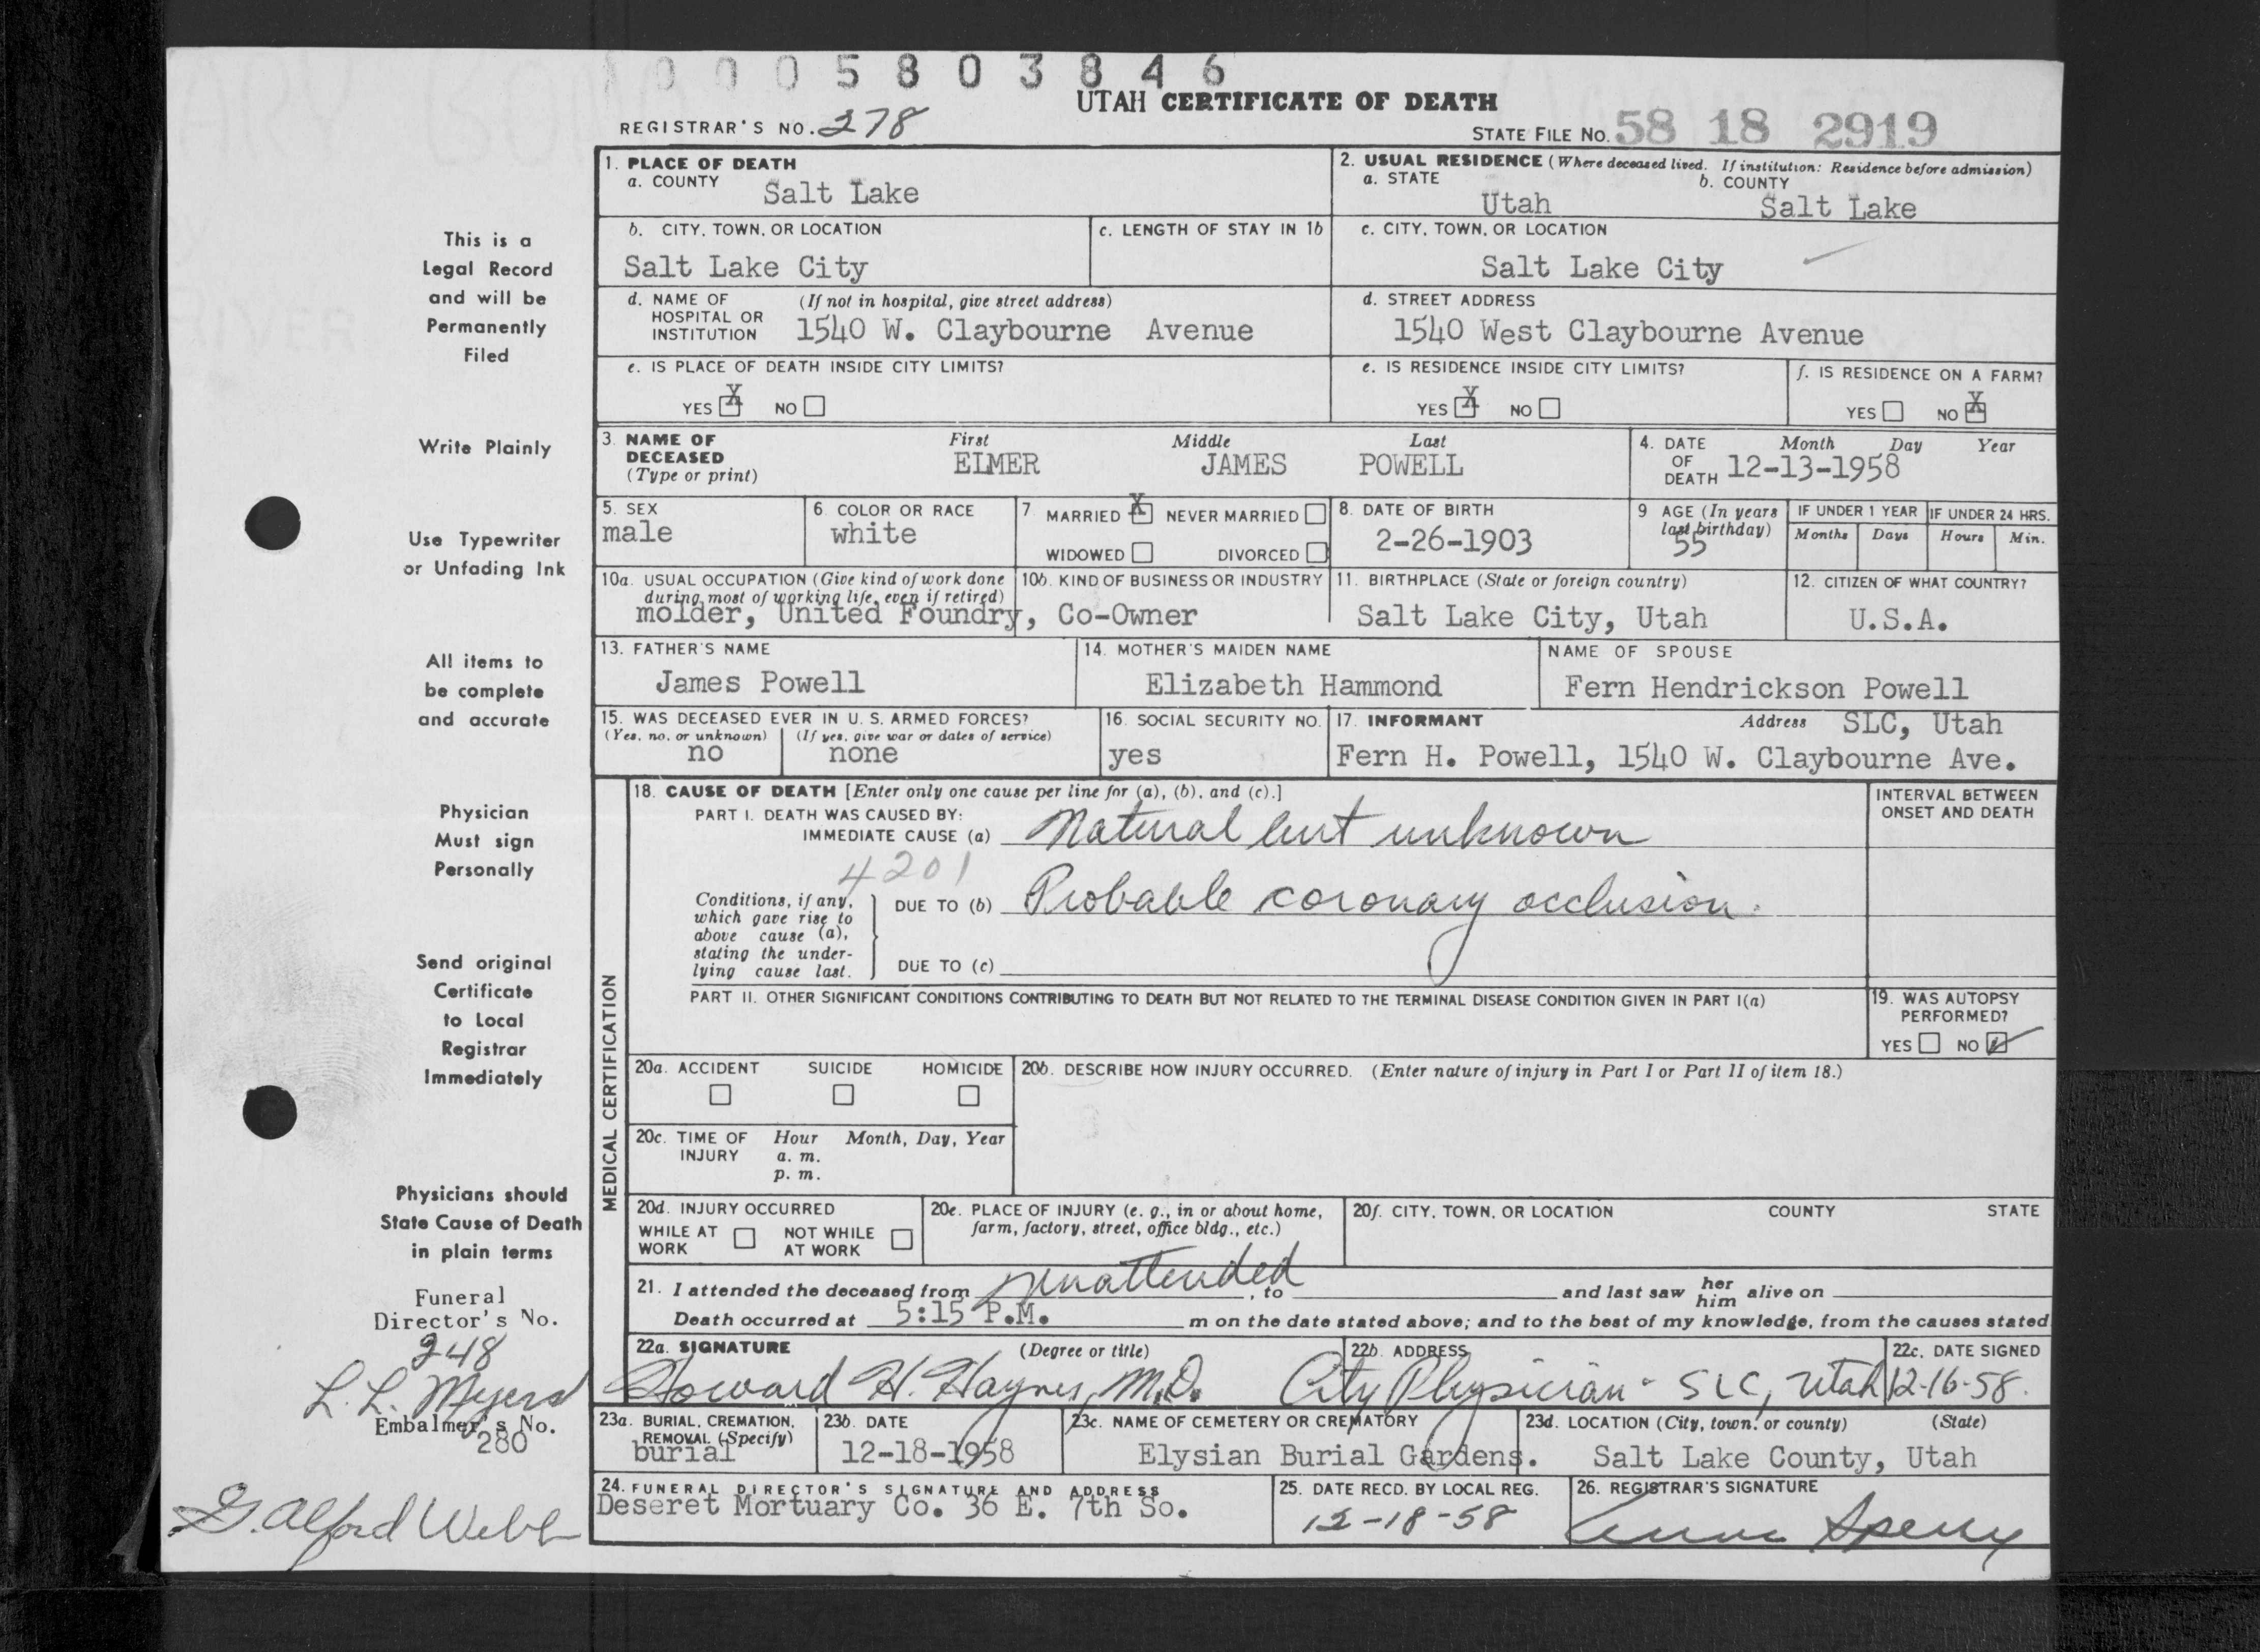 0 0 0 5 8 0 3 8 4 6
UTAH CERTIFICATE OF DEATH
REGISTRAR'S NO. 278
STATE FILE NO. 58 18 2919
This is a
Legal Record
and will be
Permanently
Filed
Write Plainly
Use Typewriter
or Unfading Ink
All items to
be complete
and accurate
Physician
Must sign
Personally
Send original
Certificate
to Local
Registrar
Immediately
Physicians should
State Cause of Death
in plain terms
Funeral
Director's No.
248
L. L. Myers
Embalmer's No.
280
G. Alford Webb
1. PLACE OF DEATH
a. COUNTY Salt Lake
2. USUAL RESIDENCE (Where deceased lived. If institution: Residence before admission)
a. STATE Utah b. COUNTY Salt Lake
b. CITY, TOWN, OR LOCATION
Salt Lake City
c. LENGTH OF STAY IN 1b
c. CITY, TOWN, OR LOCATION
Salt Lake City
d. NAME OF (If not in hospital, give street address)
HOSPITAL OR
INSTITUTION 1540 W. Claybourne Avenue
d. STREET ADDRESS
1540 West Claybourne Avenue
e. IS PLACE OF DEATH INSIDE CITY LIMITS?
YES X NO
e. IS RESIDENCE INSIDE CITY LIMITS?
YES X NO
f. IS RESIDENCE ON A FARM?
YES NO X
3. NAME OF First Middle Last
DECEASED ELMER JAMES POWELL
(Type or print)
4. DATE Month Day Year
OF
DEATH 12-13-1958
5. SEX
male
6. COLOR OR RACE
white
7. MARRIED X NEVER MARRIED
WIDOWED DIVORCED
8. DATE OF BIRTH
2-26-1903
9 AGE (In years
last birthday)
55
IF UNDER 1 YEAR IF UNDER 24 HRS.
Months Days Hours Min.
10a. USUAL OCCUPATION (Give kind of work done
during most of working life, even if retired)
10b. KIND OF BUSINESS OR INDUSTRY
molder, United Foundry, Co-Owner
11. BIRTHPLACE (State or foreign country)
Salt Lake City, Utah
12. CITIZEN OF WHAT COUNTRY?
U.S.A.
13. FATHER'S NAME
James Powell
14. MOTHER'S MAIDEN NAME
Elizabeth Hammond
NAME OF SPOUSE
Fern Hendrickson Powell
15. WAS DECEASED EVER IN U. S. ARMED FORCES?
(Yes, no, or unknown) (If yes, give war or dates of service)
no none
16. SOCIAL SECURITY NO.
yes
17. INFORMANT Address SLC, Utah
Fern H. Powell, 1540 W. Claybourne Ave.
MEDICAL CERTIFICATION
18. CAUSE OF DEATH [Enter only one cause per line for (a), (b), and (c).]
PART I. DEATH WAS CAUSED BY:
IMMEDIATE CAUSE (a) Natural but unknown
4201
Conditions, if any,
which gave rise to
above cause (a),
stating the under-
lying cause last.
DUE TO (b) Probable coronary occlusion.
DUE TO (c)
INTERVAL BETWEEN
ONSET AND DEATH
PART II. OTHER SIGNIFICANT CONDITIONS CONTRIBUTING TO DEATH BUT NOT RELATED TO THE TERMINAL DISEASE CONDITION GIVEN IN PART I(a)
19. WAS AUTOPSY
PERFORMED?
YES NO ✓
20a. ACCIDENT SUICIDE HOMICIDE
20b. DESCRIBE HOW INJURY OCCURRED. (Enter nature of injury in Part I or Part II of item 18.)
20c. TIME OF Hour Month, Day, Year
INJURY a. m.
p. m.
20d. INJURY OCCURRED
WHILE AT NOT WHILE
WORK AT WORK
20e. PLACE OF INJURY (e. g., in or about home,
farm, factory, street, office bldg., etc.)
20f. CITY, TOWN, OR LOCATION COUNTY STATE
21. I attended the deceased from unattended, to and last saw her him alive on
Death occurred at 5:15 P.M. m on the date stated above; and to the best of my knowledge, from the causes stated
22a. SIGNATURE (Degree or title)
Howard H. Haynes, M.D.
22b. ADDRESS
City Physician - SLC, Utah
22c. DATE SIGNED
12-16-58.
23a. BURIAL, CREMATION,
REMOVAL (Specify)
burial
23b. DATE
12-18-1958
23c. NAME OF CEMETERY OR CREMATORY
Elysian Burial Gardens.
23d. LOCATION (City, town, or county) (State)
Salt Lake County, Utah
24. FUNERAL DIRECTOR'S SIGNATURE AND ADDRESS
Deseret Mortuary Co. 36 E. 7th So.
25. DATE RECD. BY LOCAL REG.
12-18-58
26. REGISTRAR'S SIGNATURE
Sperry